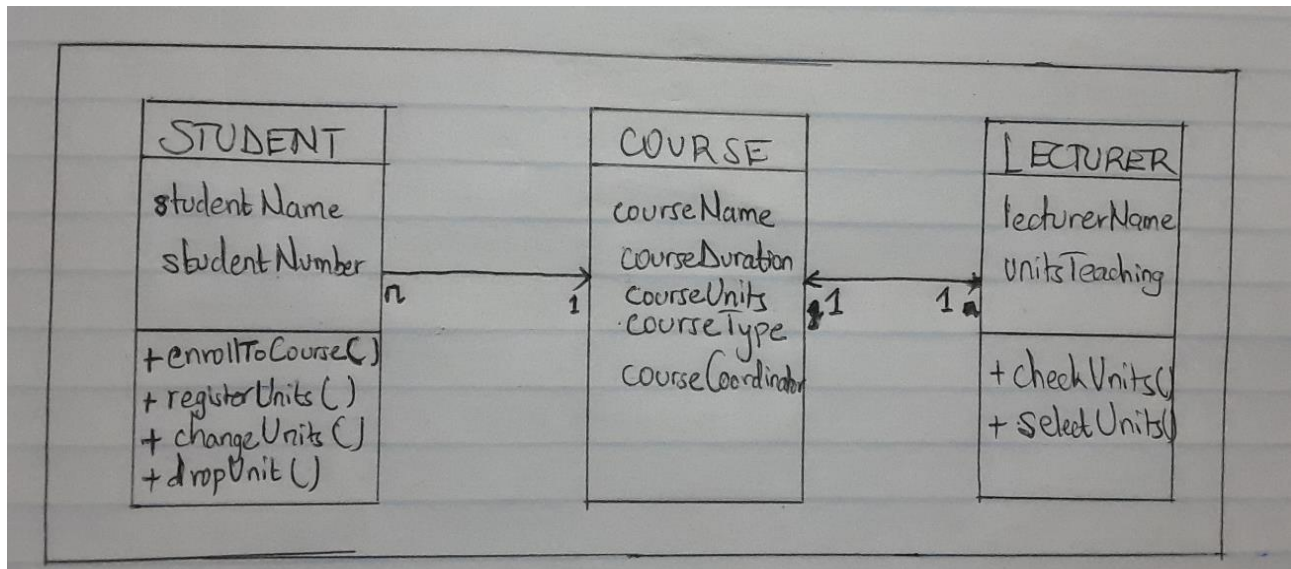 STUDENT
studentName
studentNumber
+ enrollToCourse()
+ registerUnits()
+ changeUnits()
+ dropUnit()
n
1
COURSE
courseName
courseDuration
courseUnits
courseType
courseCoordinator
1
1
LECTURER
lecturerName
unitsTeaching
+ checkUnits()
+ selectUnits()